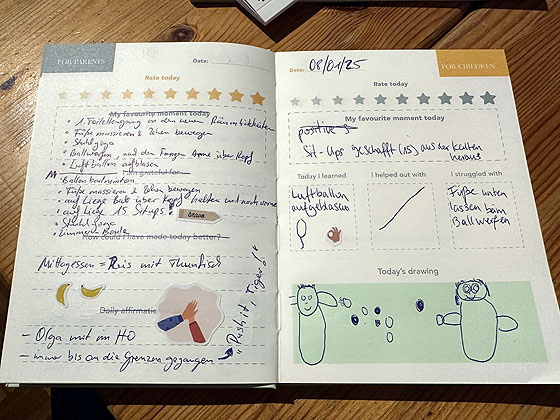 FOR PARENTS
Date:
Rate today
My favourite moment today
1. Toilettengang in den neuen
Füße massieren & Zehen bewegen
Stuhlyoga
Ballwerfen, nach dem Fangen Arme über Kopf
Luftballon aufblasen
I'm grateful for
Ballon badminton
Füße massieren & Zehen bewegen
auf Liege Ball über Kopf halten und nach vorne
auf Liege 15 Sit ups
brava
Stuhlyoga
Zimmer Boule
How could I have made today better?
Mittagessen = Reis mit Thunfisch
Daily affirmatio
- Olga mit im HO
- immer bis an die Grenzen gegangen
"Push it, Tiger!"
FOR CHILDREN
Date: 08/01/25
Rate today
My favourite moment today
positive
Sit-Ups geschafft (15) aus der kalten
heraus
Today I learned
Luftballon
aufgeblasen
I helped out with
I struggled with
Füße unten
lassen beim
Ballwerfen
Today's drawing